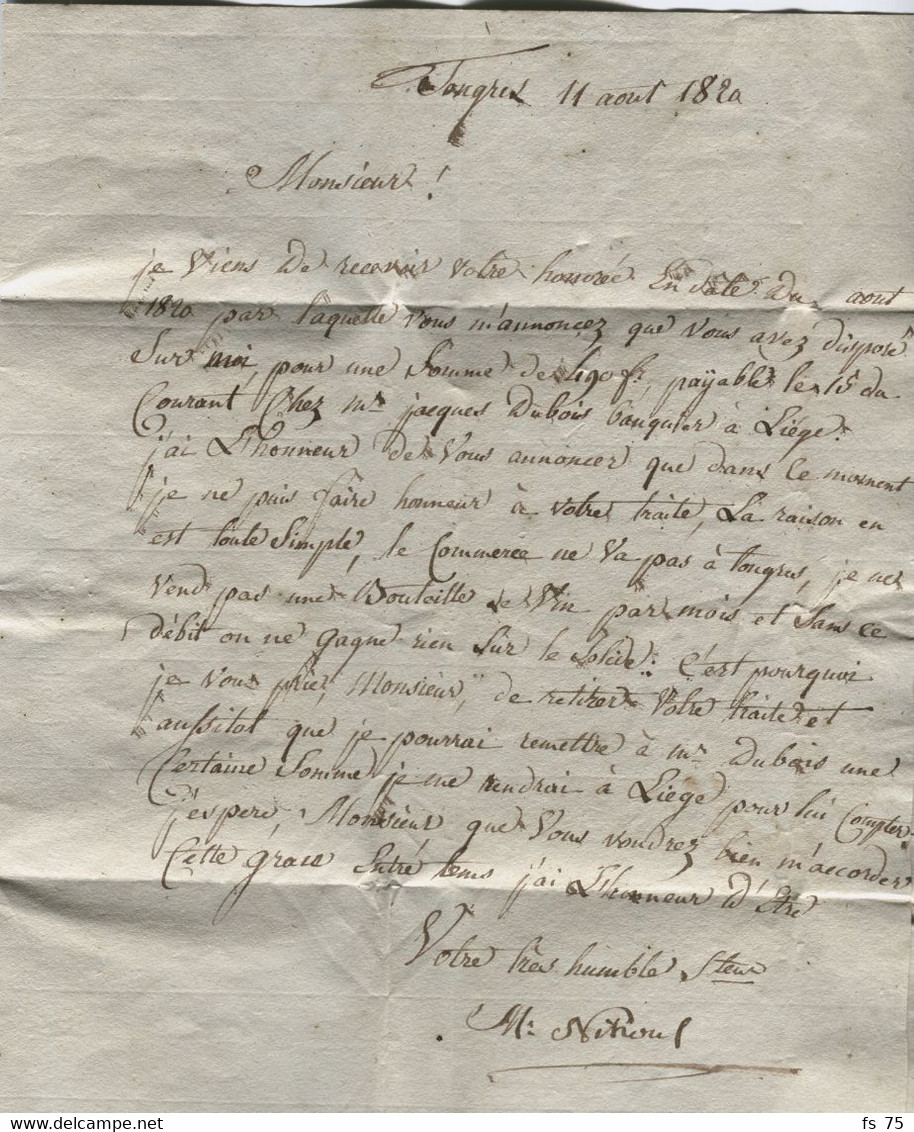 Tongres 11 aout 1820
Monsieur !
je Viens De recevoir votre honorée En date Du aout
1820 par laquelle vous m'annoncez que vous avez disposé
Sur moi, pour une Somme de 490 f., payable le 15 du
Courant Chez mr jacques Dubois banquier à Liége.
j'ai L'honneur de Vous annoncer que dans le moment
je ne puis faire honneur à votre traite, La raison en
est toute Simple, le Commerce ne Va pas à tongres, je ne
vend pas une Bouteille de Vin par mois et Sans ce
débit on ne gagne rien Sur le Solide. C'est pourquoi
je vous prie, Monsieur, de retirer Votre traite et
aussitot que je pourrai remettre à mr Dubois une
Certaine Somme je me rendrai à Liége pour lui Compter.
j'espere, Monsieur que Vous voudrez bien m'accorder
Cette grace Entre tems j'ai L'honneur d'Etre
Votre très humble Steur
M: Nihoul
fs 75